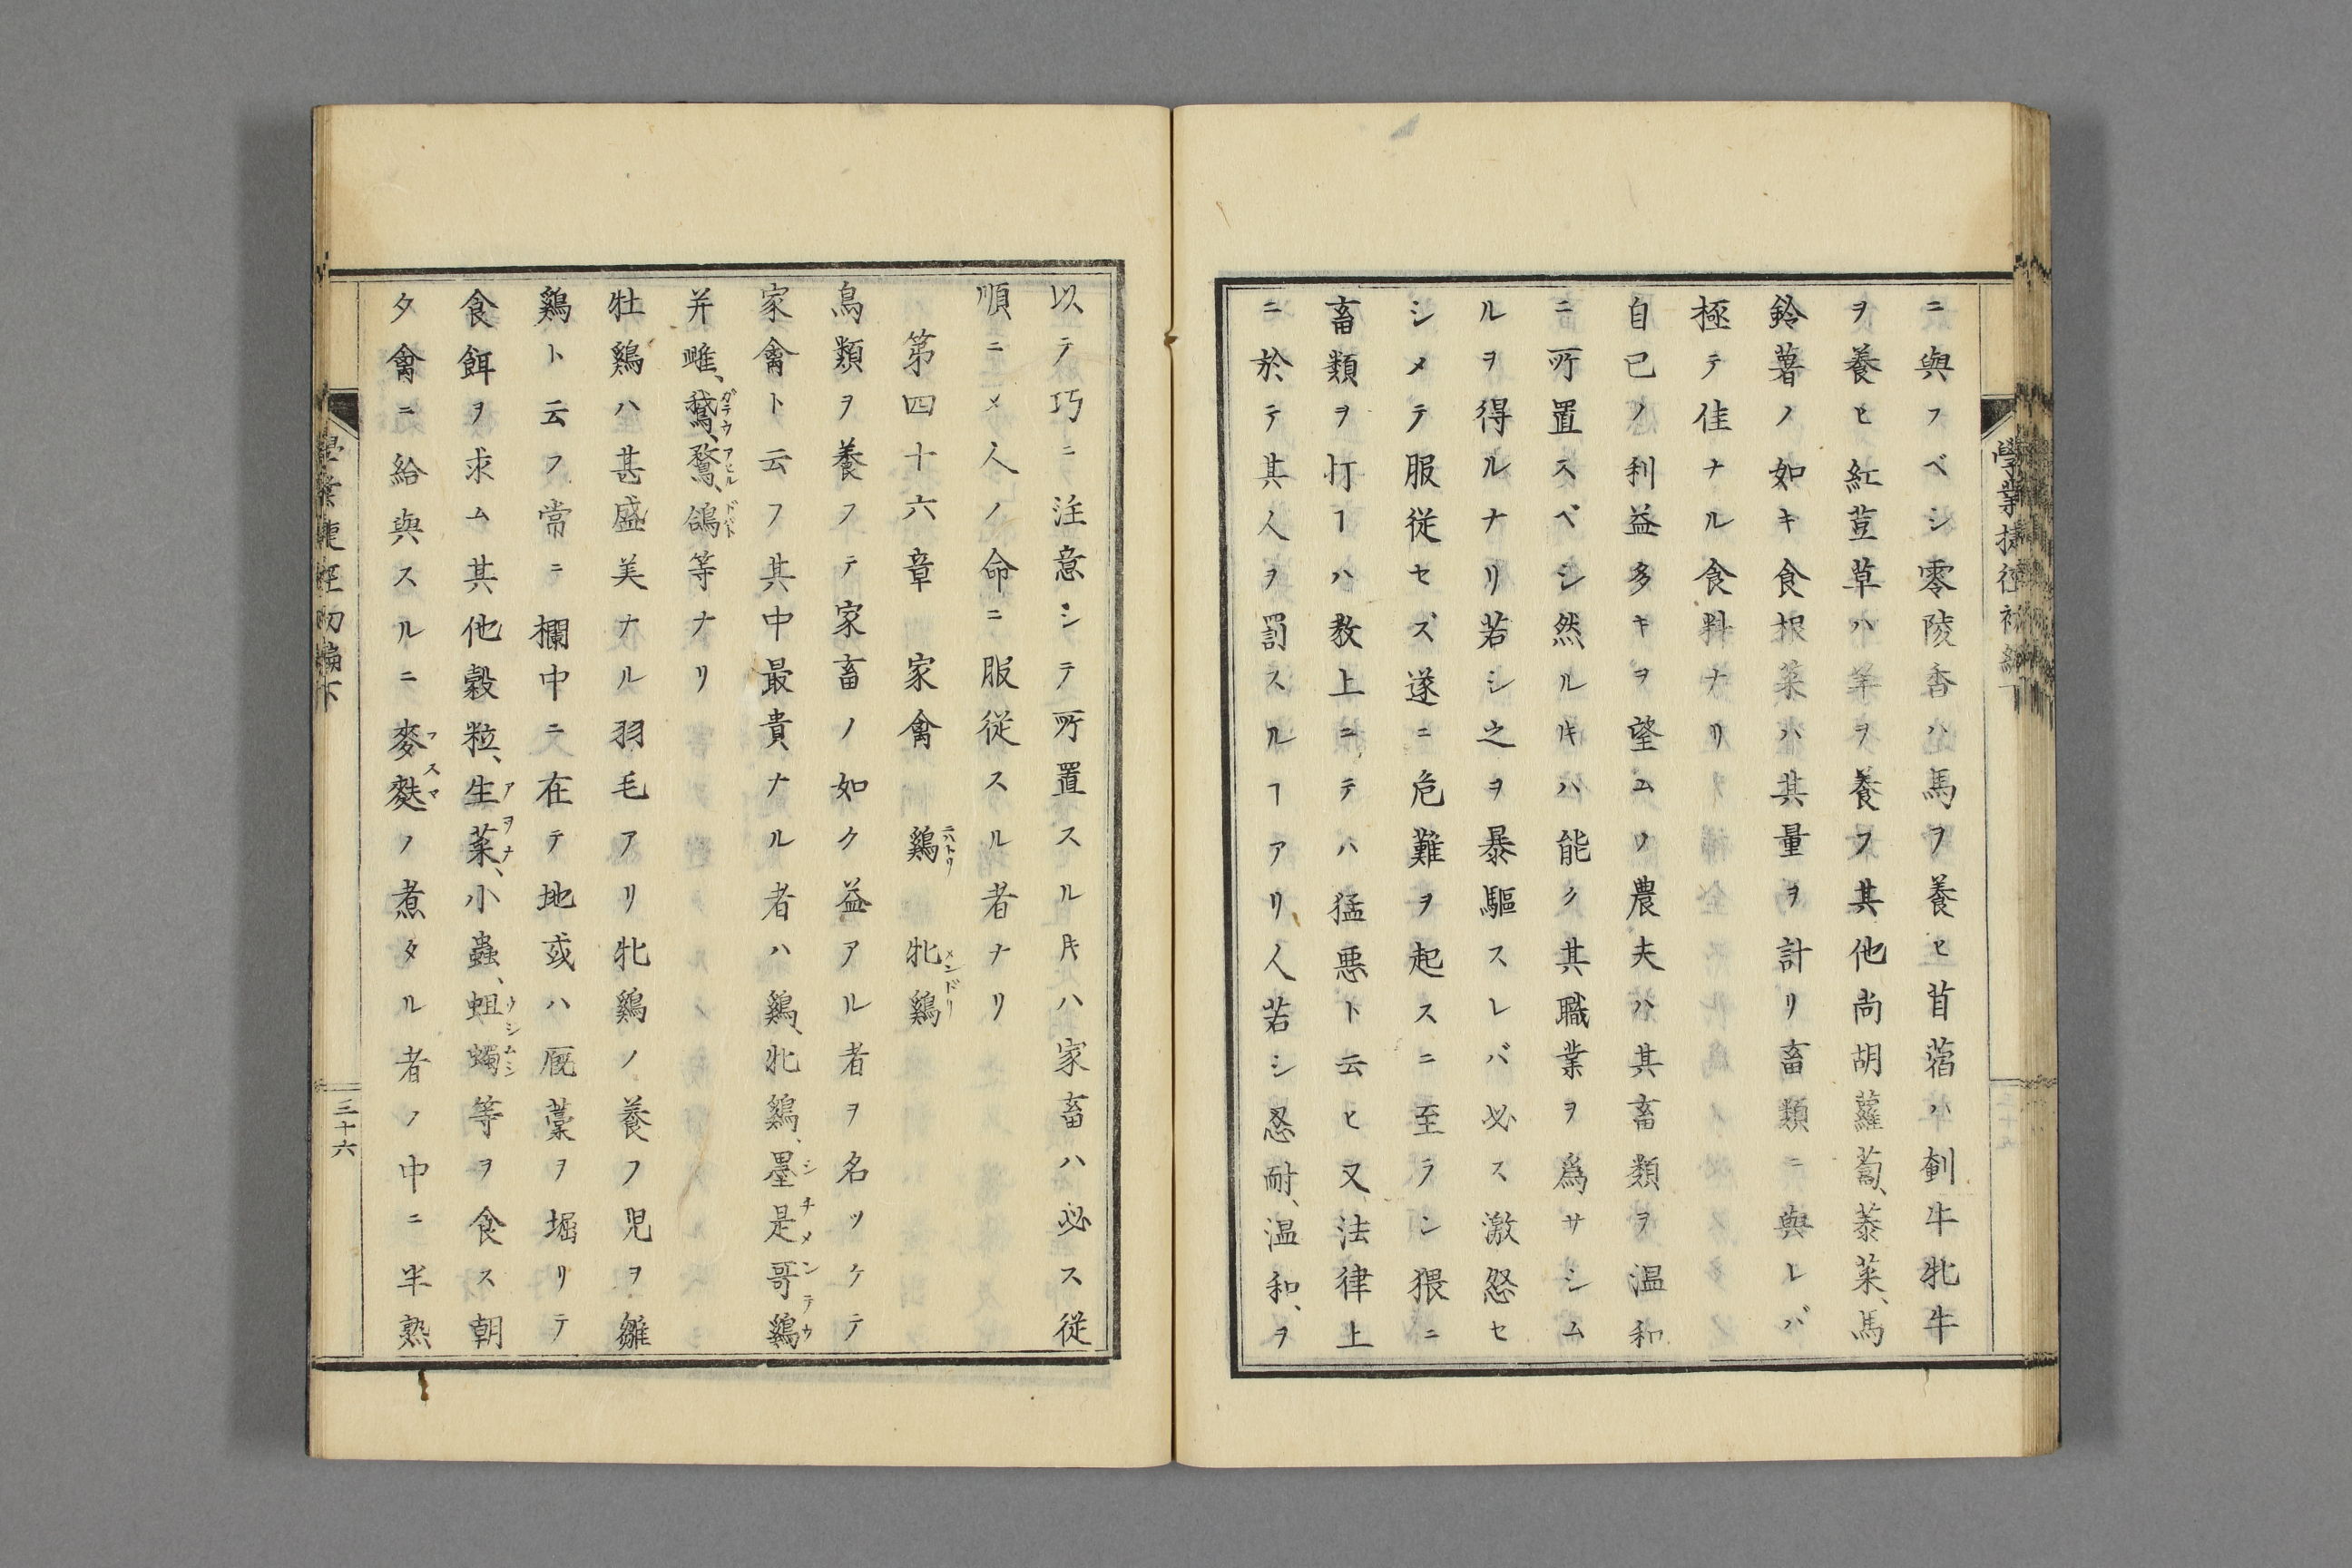 學業捷徑初編下
ニ與フベシ零陵香ハ馬ヲ養ヒ苜蓿ハ㓺牛牝牛
ヲ養ヒ紅荳草ハ羊ヲ養フ其他尚胡蘿蔔、菾菜、馬
鈴薯ノ如キ食根菜ハ其量ヲ計リ畜類ニ與レバ
極テ佳ナル食料ナリ
自已ノ利益多キヲ望ムノ農夫ハ其畜類ヲ温和
ニ所置スベシ然ルキハ能ク其職業ヲ爲サシム
ルヲ得ルナリ若シ之ヲ暴驅スレバ必ス激怒セ
シメテ服従セズ遂ニ危難ヲ起スニ至ラン猥ニ
畜類ヲ打ヿハ教上ニテハ猛悪ト云ヒ又法律上
ニ於テ其人ヲ罰スルヿアリ人若シ忍耐、温和、ヲ
以テ巧ニ注意シテ所置スル𪜈ハ家畜ハ必ス従
順ニメ人ノ命ニ服従スル者ナリ
第四十六章 家禽 鷄ニハトリ 牝鷄メンドリ
鳥類ヲ養フテ家畜ノ如ク益アル者ヲ名ツケテ
家禽ト云フ其中最貴ナル者ハ鷄、牝鷄、墨是哥鷄シチメンテウ
并雌、鵞ガテウ、鶩アヒル、鴿ドバト等ナリ
牡鷄ハ甚盛美ナル羽毛アリ牝鷄ノ養フ児ヲ雛
鷄ト云フ常ニ欄中ニ在テ地或ハ厩藁ヲ堀リテ
食餌ヲ求ム其他穀粒、生菜アヲナ、小蟲、蛆蠋ウシムシ等ヲ食ス朝
夕禽ニ給與スルニ麥麩フスマノ煮タル者ノ中ニ半熟
學業捷徑初編下
三十六